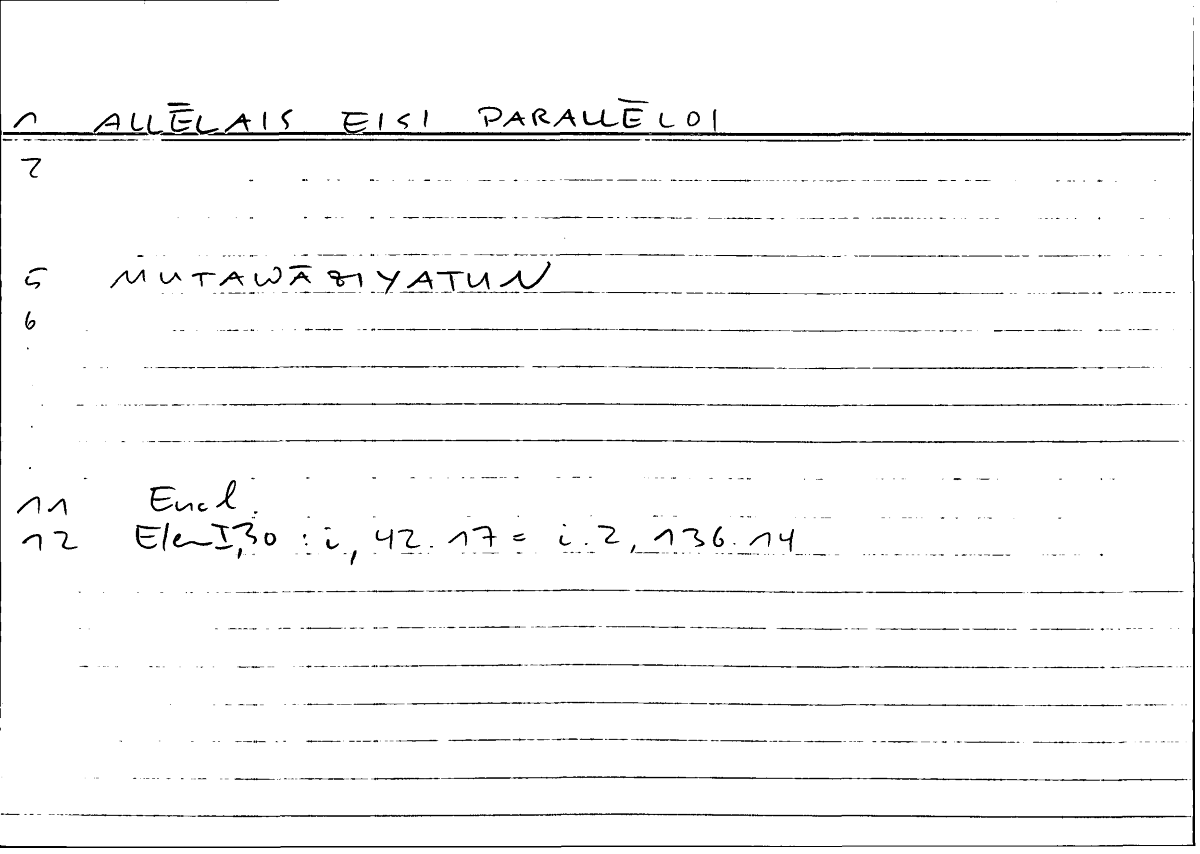 1 ALLĒLAIS EISI PARALLĒLOI
2
5 MUTAWĀZIYATUN
6
.
.
.
11 Eucl.
12 Elem I,30 : i, 42.17 = i.2, 136.14